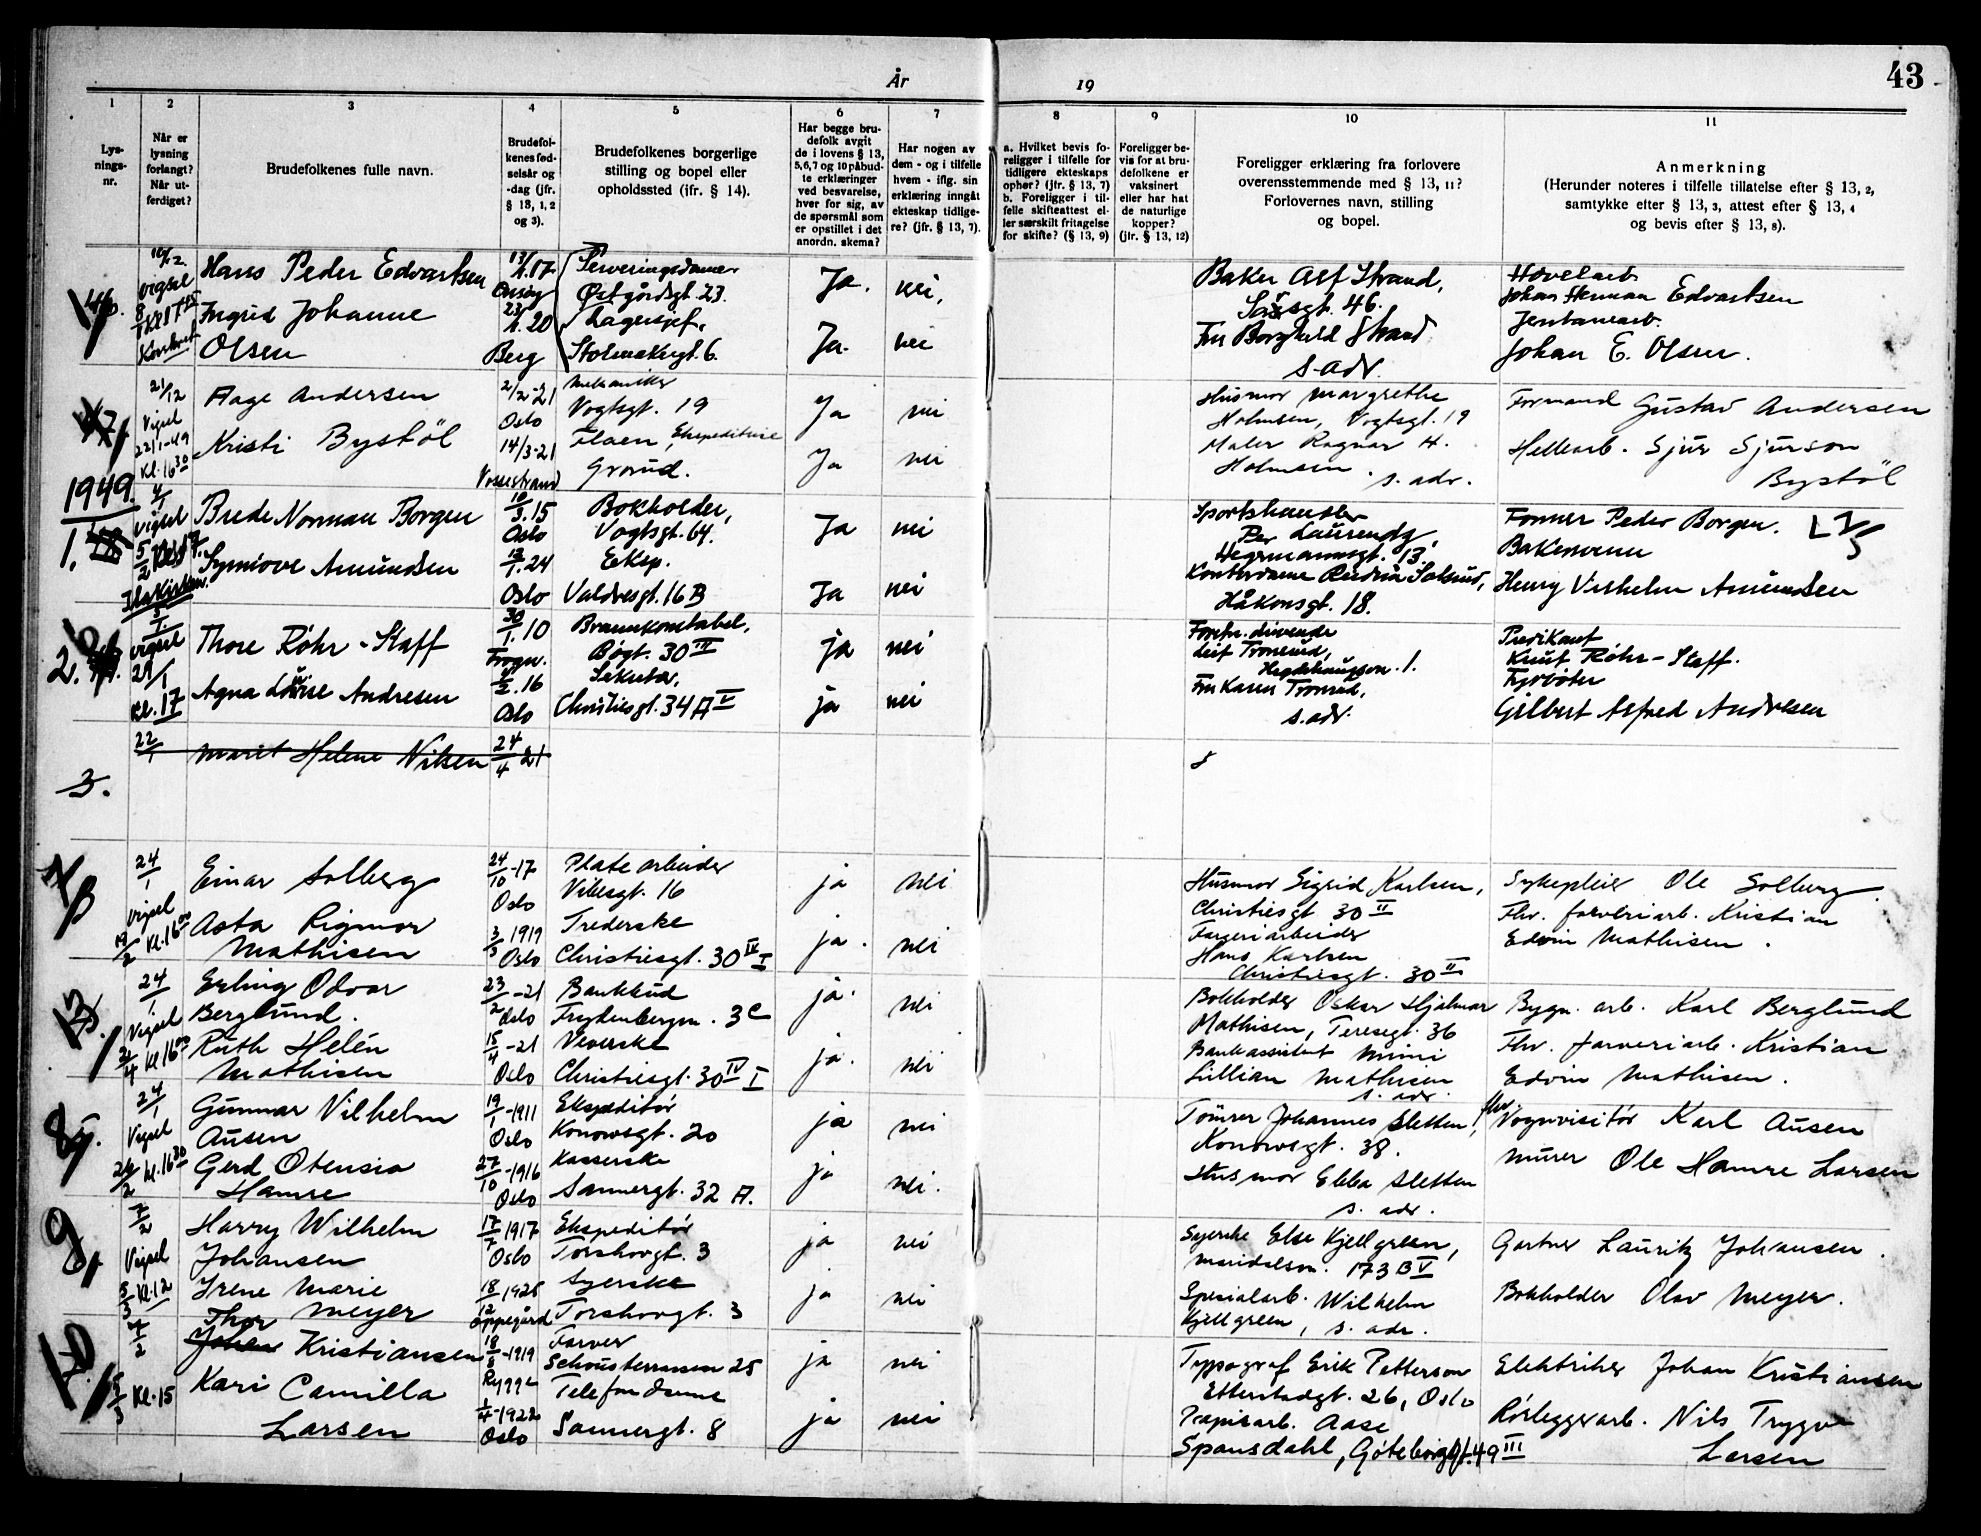 År
19
43
1
2
3
4
5
6
7
8
9
10
11
Lys-
nings-
nr.
Når er
lysning
forlangt?
Når ut-
ferdiget?
Brudefolkenes fulle navn.
Brudefol-
kenes fød-
selsår og
-dag (jfr.
§ 13, 1, 2
og 3).
Brudefolkenes borgerlige
stilling og bopel eller
opholdssted (jfr. § 14).
Har begge bru-
defolk avgit
de i lovens § 13,
5, 6, 7 og 10 påbud-
te erklæringer
ved besvarelse,
hver for sig, av
de spørsmål som
er opstillet i det
anordn. skema?
Har nogen av
dem - og i tilfelle
hvem - iflg. sin
erklæring inngåt
ekteskap tidlige-
re? (jfr. § 13, 7).
a. Hvilket bevis fo-
religger i tilfelle for
tidligere ekteskaps
ophør? (jfr. § 13, 7)
b. Foreligger i til-
felle skifteattest el-
ler særskilt fritagelse
for skifte? (§ 13, 9)
Foreligger be-
vis for at bru-
defolkene er
vaksinert
eller har hat
de naturlige
kopper?
(jfr. § 13, 12)
Foreligger erklæring fra forlovere
overensstemmende med § 13, 11?
Forlovernes navn, stilling
og bopel.
Anmerkning
(Herunder noteres i tilfelle tillatelse efter § 13, 2,
samtykke efter § 13, 3, attest efter § 13, 4
og bevis efter § 13, 8).
46.
10/12.
vigsel
Hans Peder Edvartsen
Ingrid Johanne
Olsen
13/1.17
Onsøy
23/1.20
Berg
Serveringsdame
Østgårdsgt. 23.
Lagersjef,
Stolmakergt. 6.
Ja.
nei,
Ja.
nei
Baker Alf Strand,
Sarsgt. 46.
Fru Borghild Strand
s. adr.
Høvelarb
Johan Herman Edvartsen
Jernbanearb.
Johan E. Olsen.
47
21/12
Vigsel
22/1-49
Kl. 16 30
Aage Andersen
Kristi Bystöl
2/2-21
Oslo
14/3-21
Vossestrand
Mekaniker
Vogtsgt. 19
Flaen, Ekspeditrise
Grorud.
Ja
nei
Ja
nei
Husmor Margrethe
Holmsen, Vogtsgt. 19
Maler Ragnar H.
Holmsen. s. adr.
Formand Gustav Andersen
Hellearb. Sjur Sjurson
Bystöl
1949.
1.
4/1
vigsel
5/2 Kl. 17.
Ilakirken.
Brede Norman Borgen
Synnöve Amundsen
10/3.15
Oslo
13/1.24
Oslo
Bokholder,
Vogtsgt. 64.
Eksp.
Valdresgt. 16 B
Ja
nei
Ja
nei
Sportshandler
Per Laurendz,
Hegermannsgt. 13.
Håkonsgt. 18.
Former Peder Borgen.
Bakersvenn
Henry Vilhelm Amundsen
2.
5/1.
vigsel
29/1
kl. 17
Thore Röhr-Staff
Agna Lovise Andresen
30/1.10
Frogn.
2.16
Oslo
Brannkonstabel,
Bøgt. 30 III
Sekretær,
Christiesgt. 34 A V
ja
nei
ja
nei
Forretn. drivende
Leif Tronrud,
Hegdehaugsvn. 1.
Fru Karen Tronrud,
s. adr.
Predikant
Knut Röhr-Staff.
Fyrbøter
Gilbert Alfred Andresen
3.
22/1
Marit Helene Nilsen
24/4 21
24/1
vigsel
19/2 Kl. 16 00
Einar Solberg
Asta Rigmor
Mathisen
24/10-17
Oslo
3/3 1919
Oslo
Platearbeider
Vibesgt. 16
Trederske
Christiesgt. 30 IV I
ja
nei
ja.
nei
Husmor Sigrid Karlsen,
Christiesgt 30 II
Fargeriarbeider
Hans Karlsen
Christiesgt. 30 II
Sykepleier Ole Solberg.
Fhv. farveriarb. Kristian
Edvin Mathisen.
24/1
Vigsel
2/4 Kl. 16 00
Erling Odvar
Berglund.
Ruth Helén
Mathisen
23/2-21
Oslo
15/4-21
Oslo
Bankbud
Frydenbergvn. 3c
Veverske
Christiesgt. 30 IV I
ja.
nei
ja.
nei
Bokholder Oskar Hjalmar
Mathisen, Teresesgt. 36
Bankassistent Mimi
Lillian Mathisen
s. adr.
Bygn. arb. Karl Berglund
Fhv. farveriarb. Kristian
Edvin Mathisen.
8.
24/1
Vigsel
26/2 Kl. 16 30
Gunnar Vilhelm
Ausen
Gerd Otensia
Hamre
19/1-1911
Oslo
27/10-1916
Oslo
Ekspeditör
Konowsgt. 20
Kasserske
Sannergt. 32 A.
ja
nei
ja
nei.
Tömrer Johannes Sletten,
Konowsgt. 38.
Husmor Ebba Sletten
s. adr.
fhv. Vognvisitör Karl Ausen
Murer Ole Hamre Larsen
9,
7/2
Vigsel
5/3 Kl. 12
Harry Wilhelm
Johansen
Irene Marie
Meyer
17/7 1917
Oslo
18/12 1925
Oppegård
Ekspeditör
Torshovgt. 3
Syerske
Torshovgt. 3
ja
nei
ja
nei
Syerske Else Kjellgreen,
Maridalsvn. 173 B V
Spesialarb. Wilhelm
Kjellgreen, s. adr.
Gartner Lauritz Johansen.
Bokholder Olav Meyer.
10
7/2
5/3 Kl. 15
Thor
Johan Kristiansen
Kari Camilla
Larsen
18/8-1919
Rygge
1/4-1922
Oslo
Farver
Schousterrassen 25
Telefondame
Sannergt. 8
ja
nei
ja
nei
Typograf Erik Petterson
Etterstadgt. 26, Oslo
Papirarb. Aase
Spansdahl, Göteborggt. 49 III
Elektriker Johan Kristiansen
Rörleggerarb. Nils Trygve
Larsen